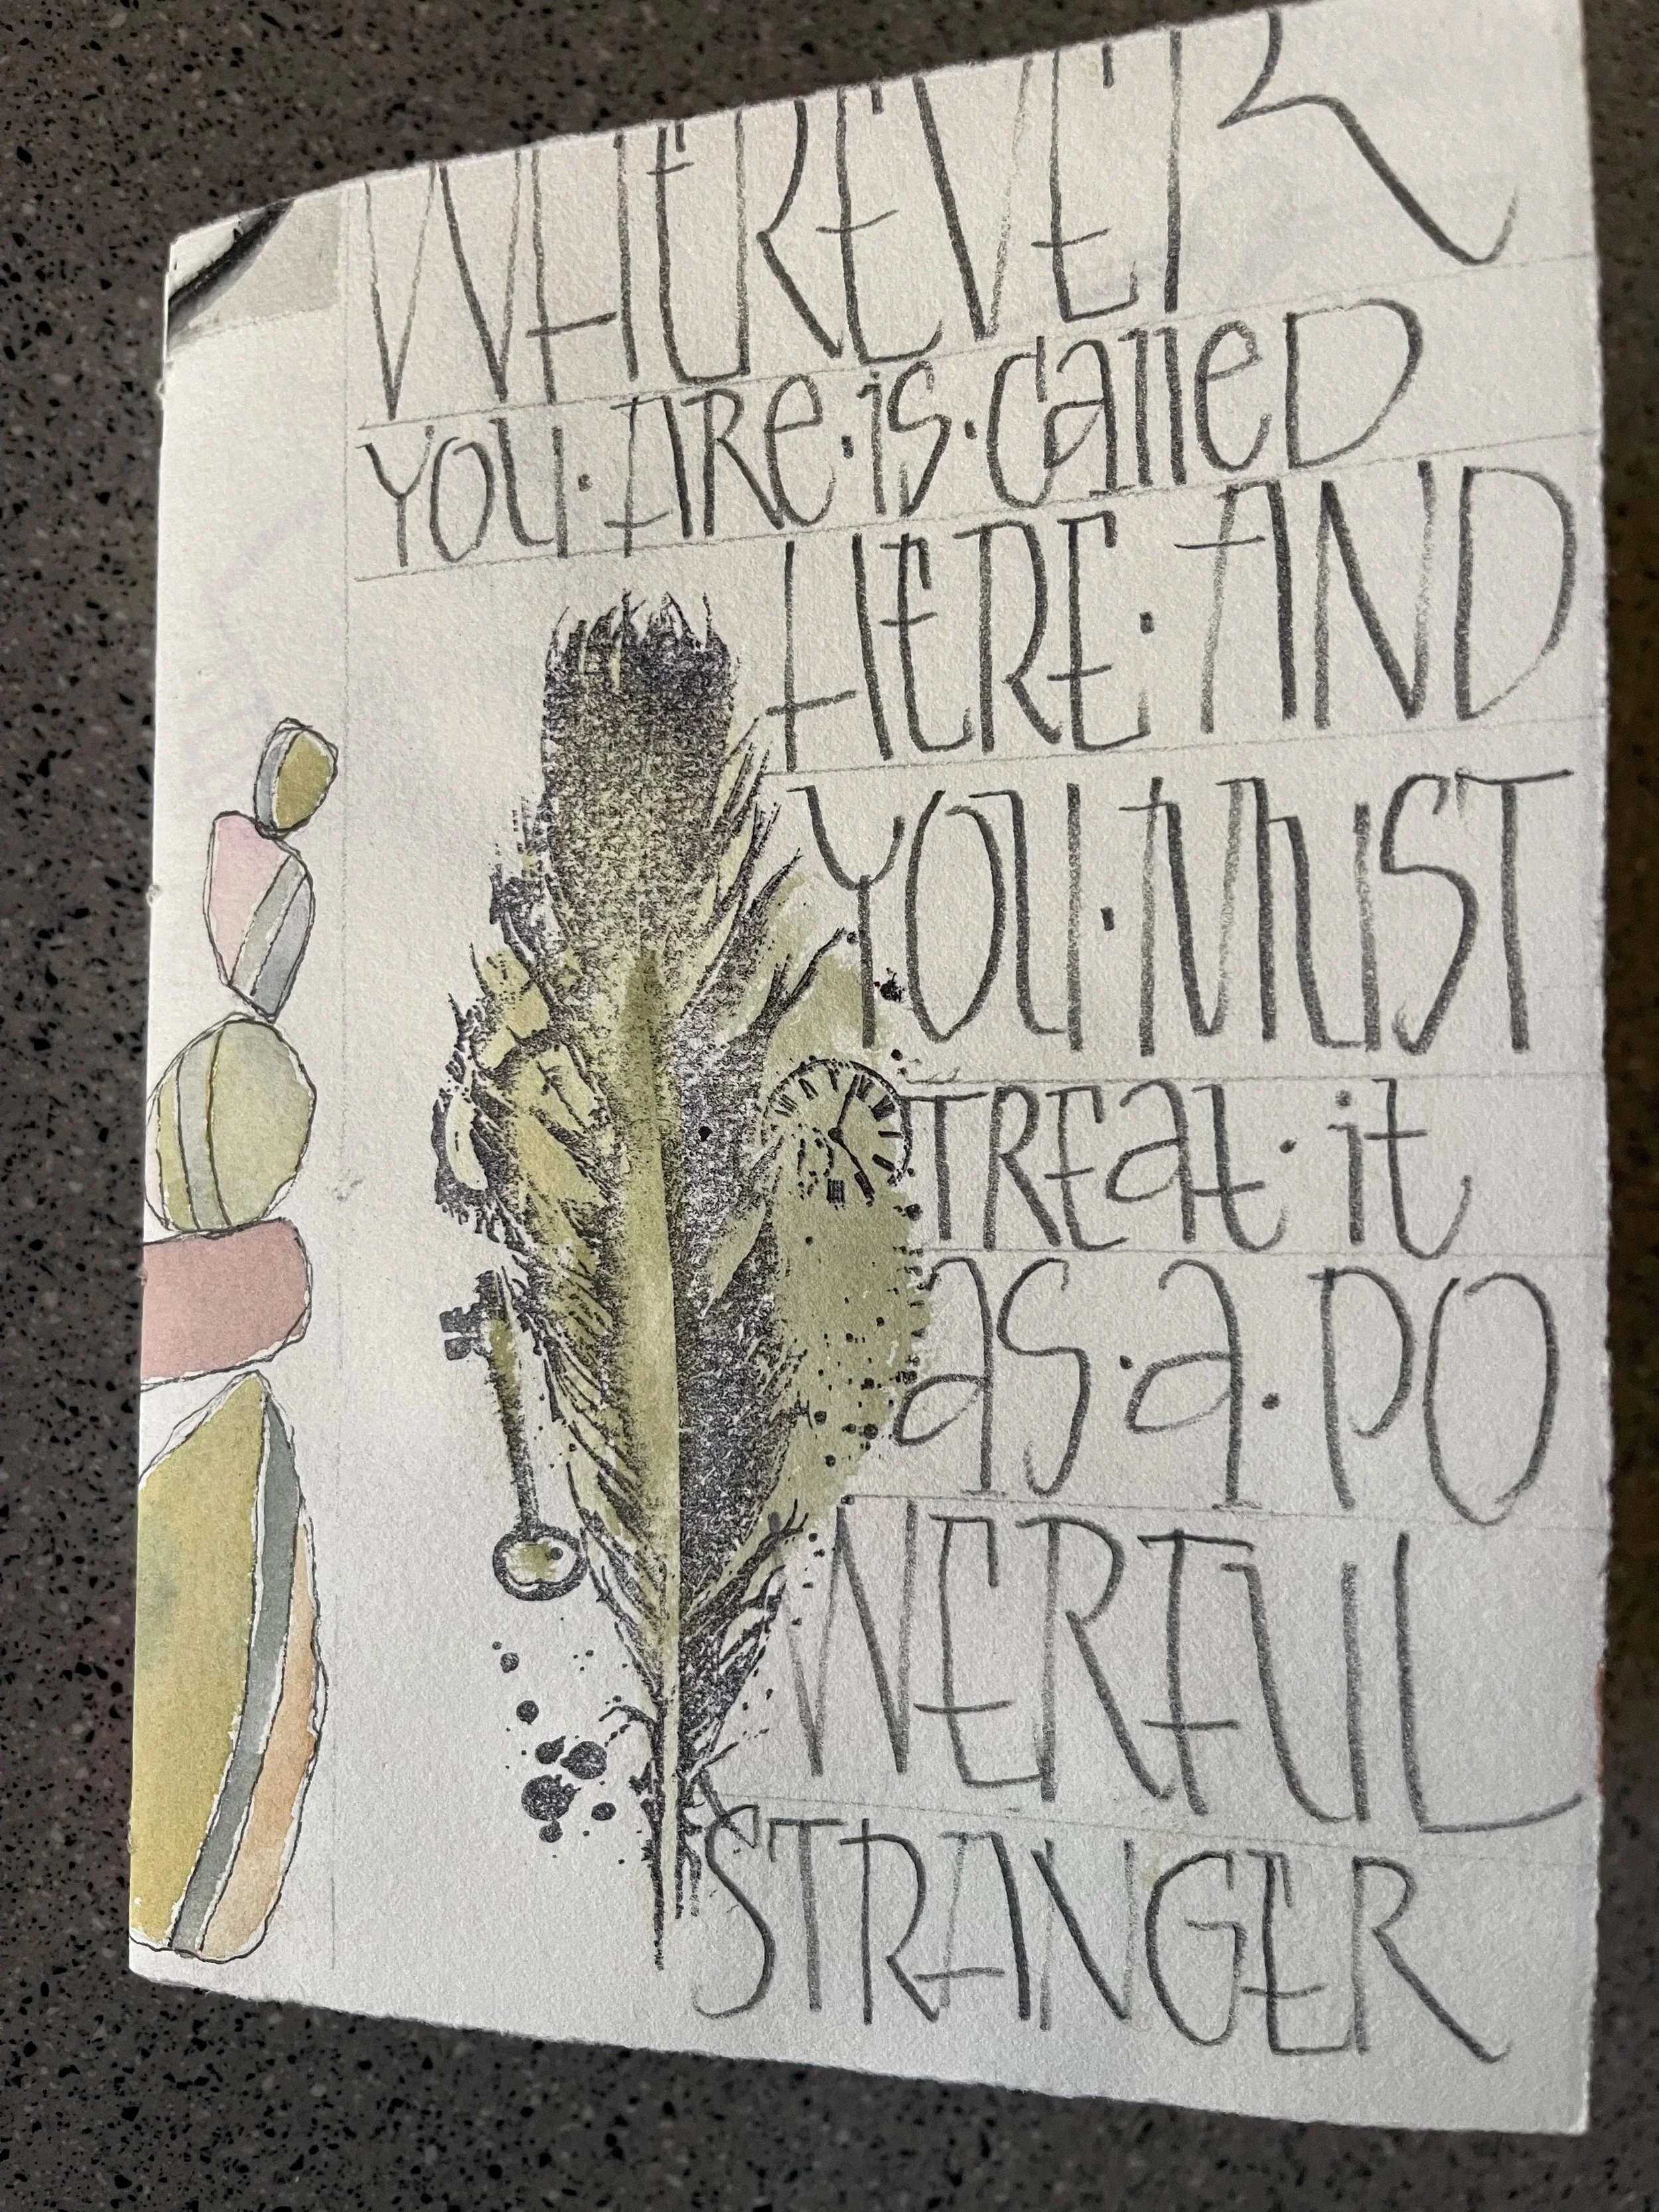 WHEREVER
YOU·ARE·is·called
HERE·AND
YOU·MUST
TREAT·it
as·a·PO
WERFUL
STRANGER